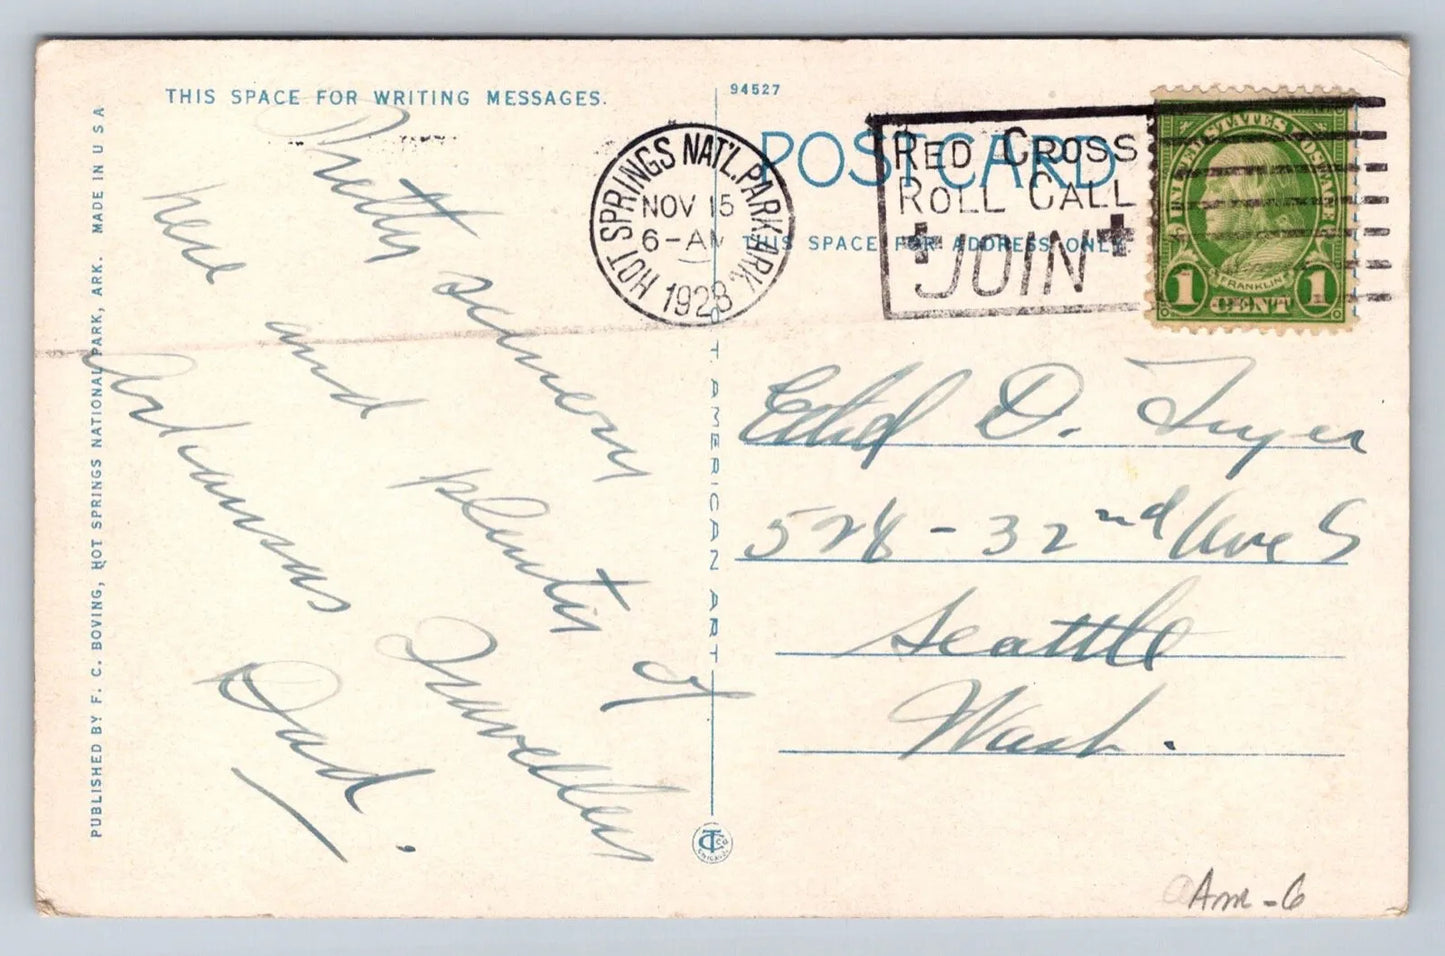 THIS SPACE FOR WRITING MESSAGES.
94527
POST CARD
THIS SPACE FOR ADDRESS ONLY
HOT SPRINGS NAT'L. PARK, ARK.
NOV 15
6-AM
1928
RED CROSS
ROLL CALL
JOIN
UNITED STATES POSTAGE
FRANKLIN
1 CENT 1
Pretty scenery
here and plenty of
Arkansas Travellers
Dad.
Ethel D. Fryer
528 - 32nd Ave S
Seattle
Wash.
PUBLISHED BY F. C. BOVING, HOT SPRINGS NATIONAL PARK, ARK. MADE IN U S A
CT AMERICAN ART
CHICAGO